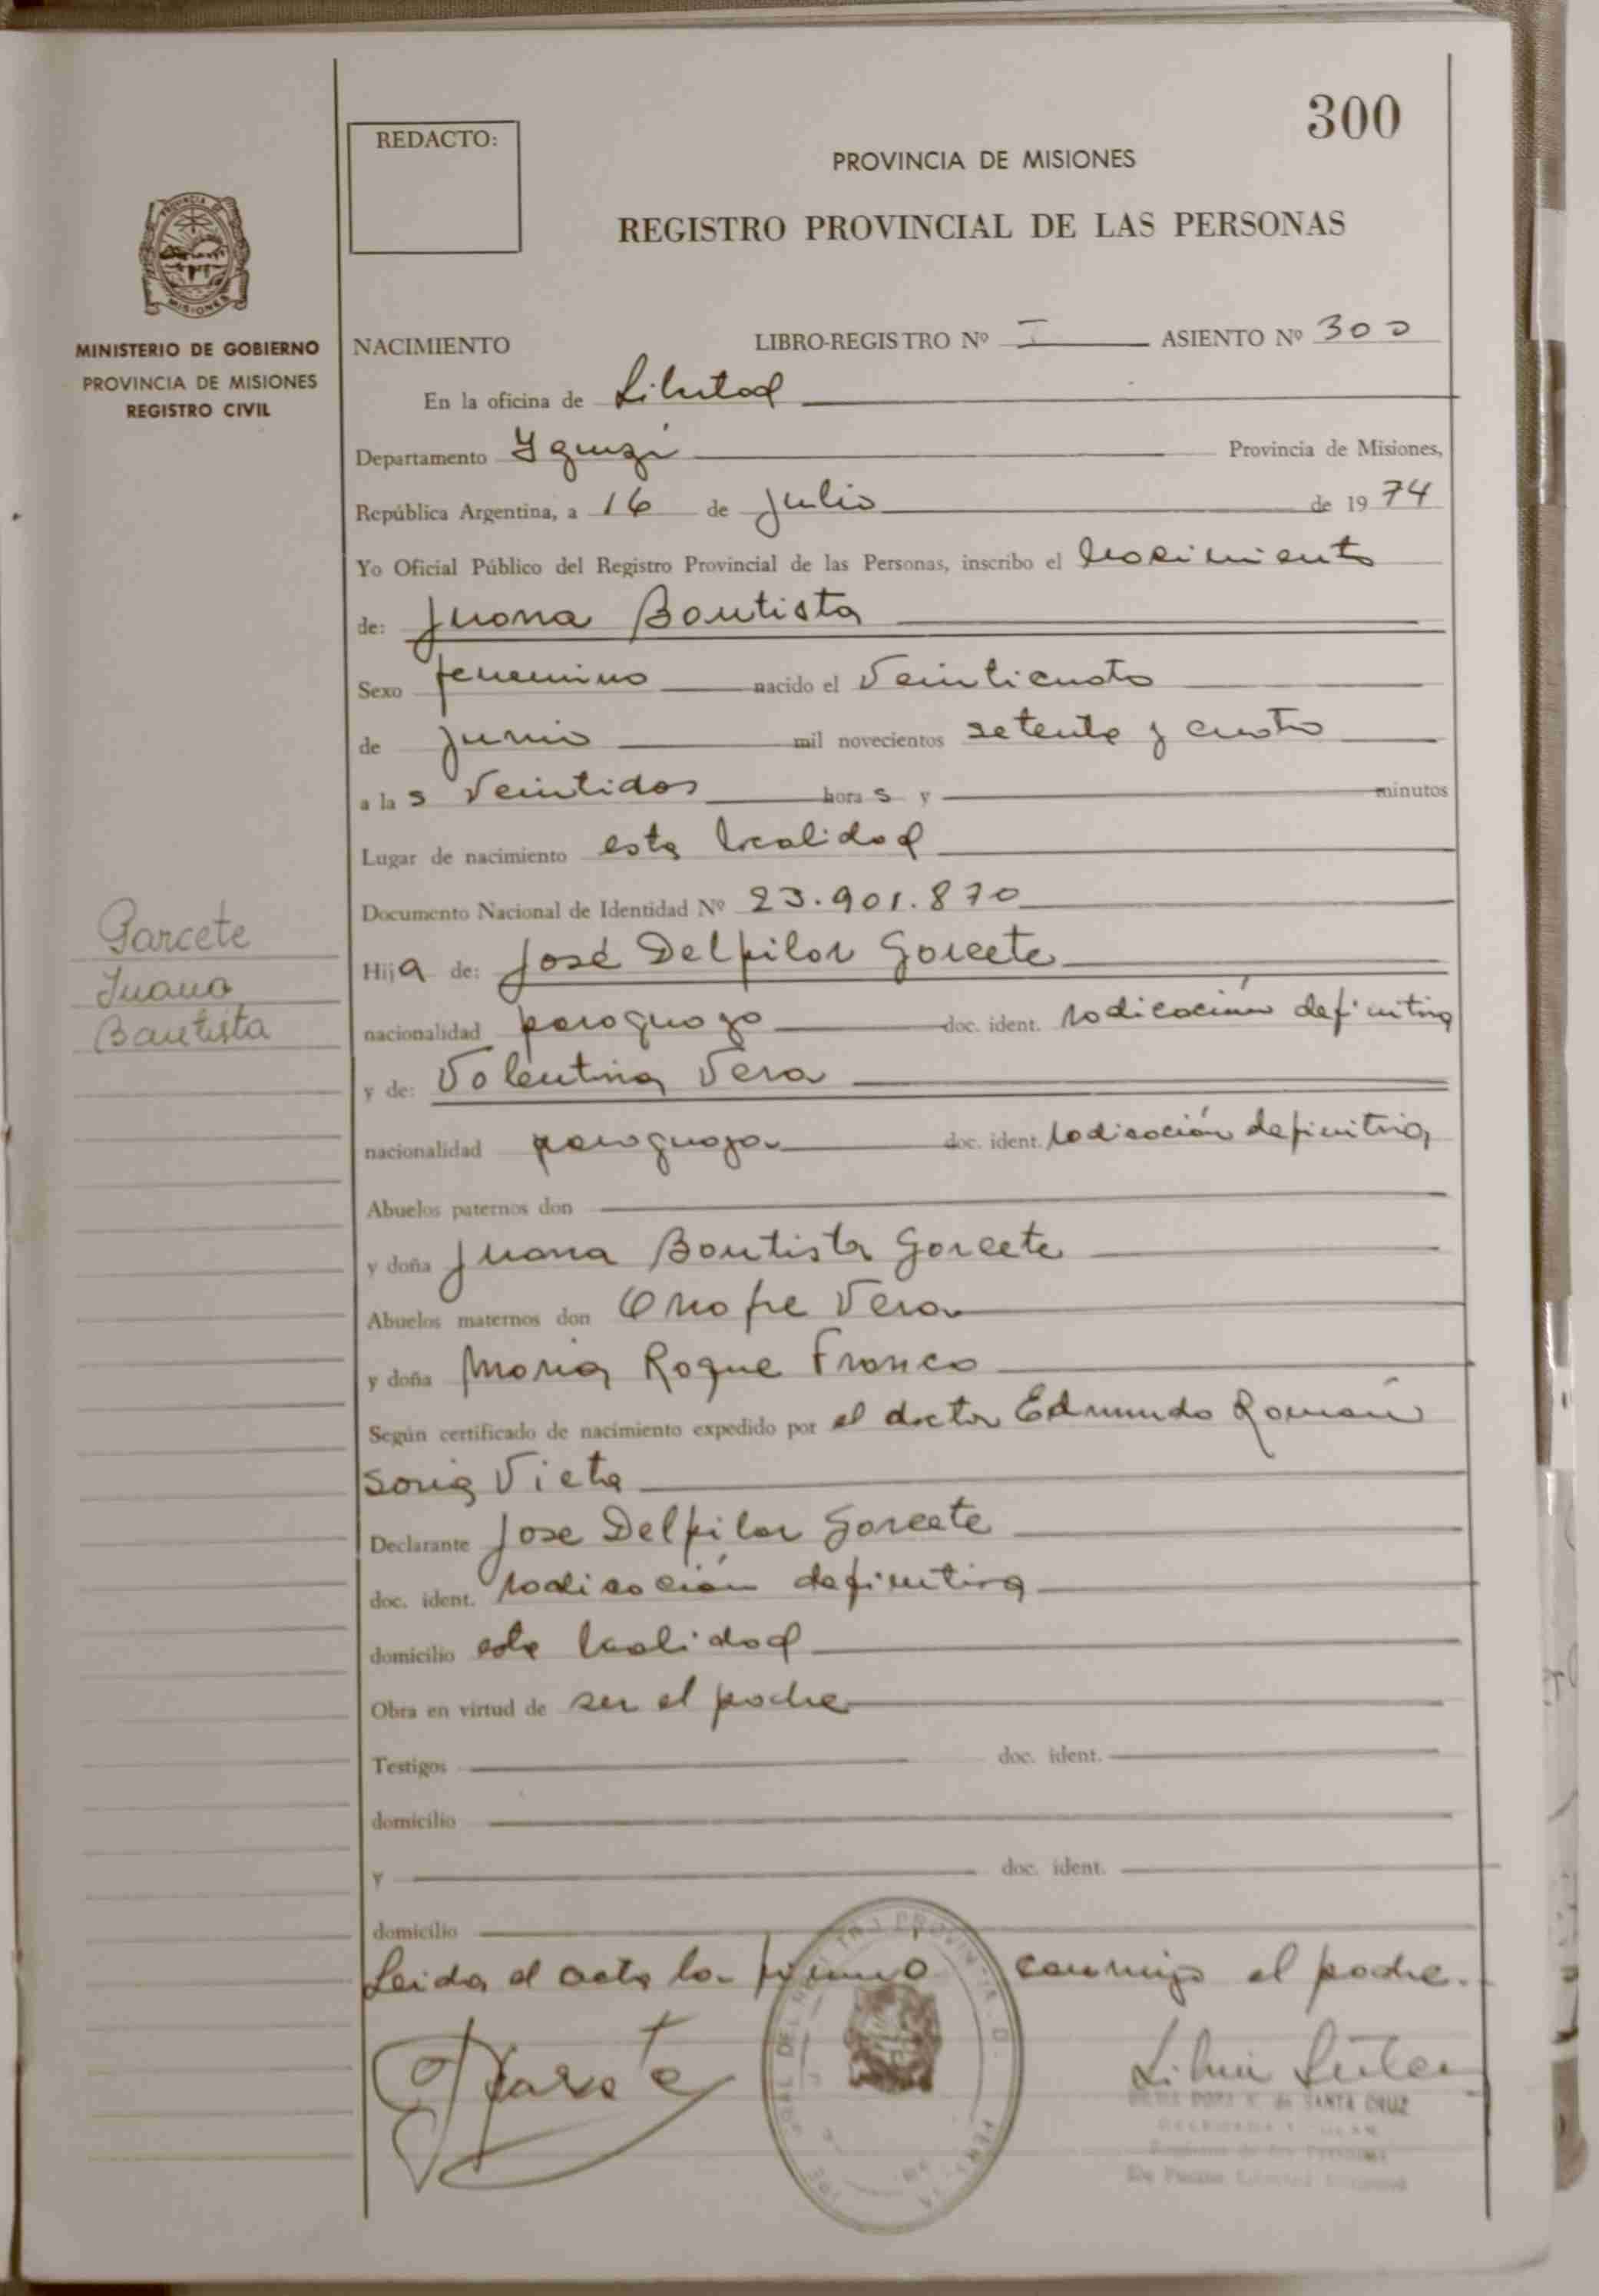 300
REDACTO:
PROVINCIA DE MISIONES
REGISTRO PROVINCIAL DE LAS PERSONAS
PROVINCIA DE
MISIONES
MINISTERIO DE GOBIERNO
PROVINCIA DE MISIONES
REGISTRO CIVIL
NACIMIENTO LIBRO-REGISTRO Nº I ASIENTO Nº 300
En la oficina de Libertad
Departamento Iguazú Provincia de Misiones,
República Argentina, a 16 de Julio de 1974
Yo Oficial Público del Registro Provincial de las Personas, inscribo el nacimiento
de: Juana Bautista
Sexo femenino nacido el Veinticuatro
de junio mil novecientos setenta y cuatro
a las Veintidos horas y minutos
Lugar de nacimiento esta localidad
Documento Nacional de Identidad Nº 23.901.870
Garcete
Juana
Bautista
Hija de: José Delpilar Garcete
nacionalidad paraguayo doc. ident. radicación definitiva
y de: Valentina Vera
nacionalidad paraguaya doc. ident. radicación definitiva
Abuelos paternos don
y doña Juana Bautista Garcete
Abuelos maternos don Onofre Vera
y doña Maria Roque Franco
Según certificado de nacimiento expedido por el doctor Edmundo Román
Soria Vieta
Declarante Jose Delpilar Garcete
doc. ident. radicación definitiva
domicilio esta localidad
Obra en virtud de ser el padre
Testigos doc. ident.
domicilio
y doc. ident.
domicilio
Leida el acta la firmó conmigo el padre.
de SANTA CRUZ